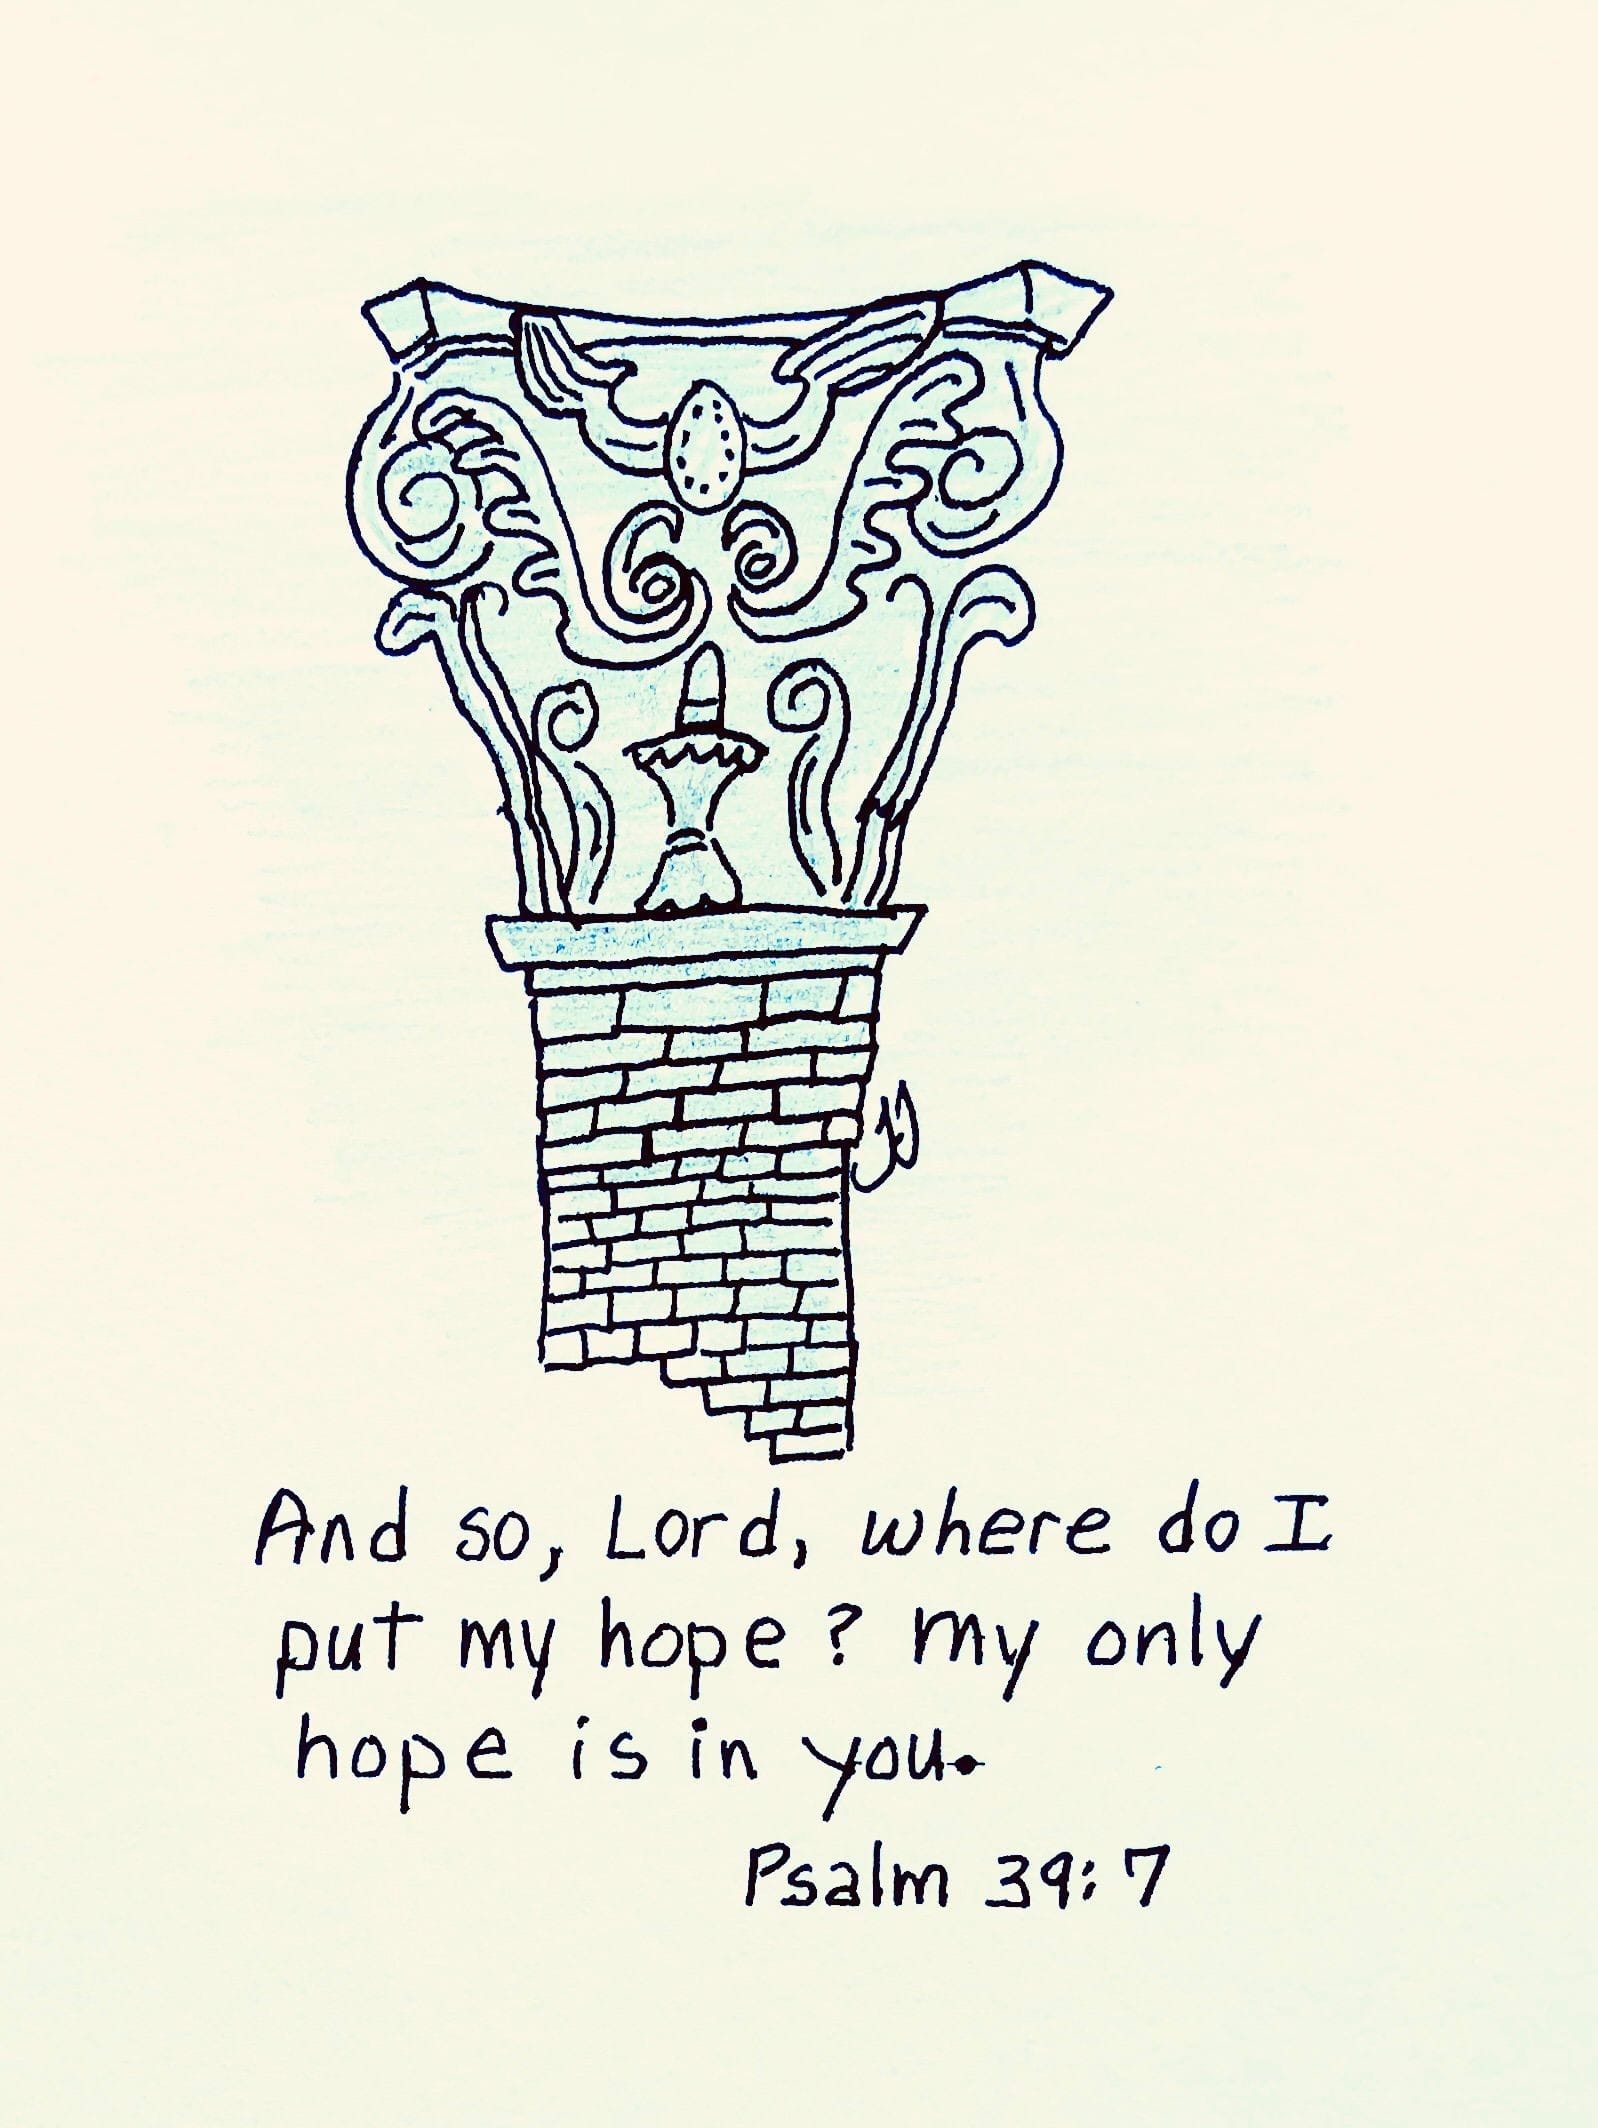 JJ
And so, Lord, where do I
put my hope? My only
hope is in you.
Psalm 39:7